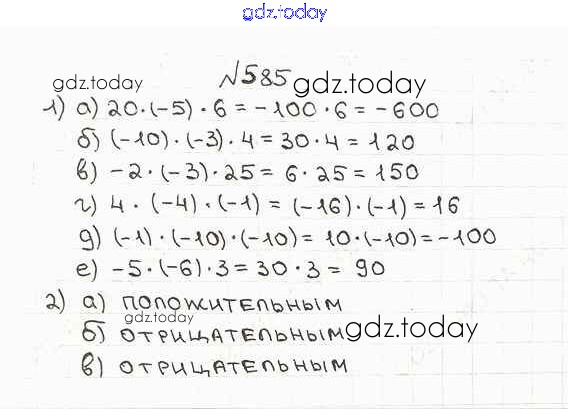 gdz.today
№585
gdz.today gdz.today
1) а) 20·(-5)·6=-100·6=-600
б) (-10)·(-3)·4=30·4=120
в) -2·(-3)·25=6·25=150
г) 4·(-4)·(-1)=(-16)·(-1)=16
д) (-1)·(-10)·(-10)=10·(-10)=-100
е) -5·(-6)·3=30·3=90
2) а) ПОЛОЖИТЕЛЬНЫМ
б) ОТРИЦАТЕЛЬНЫМ gdz.today
в) ОТРИЦАТЕЛЬНЫМ